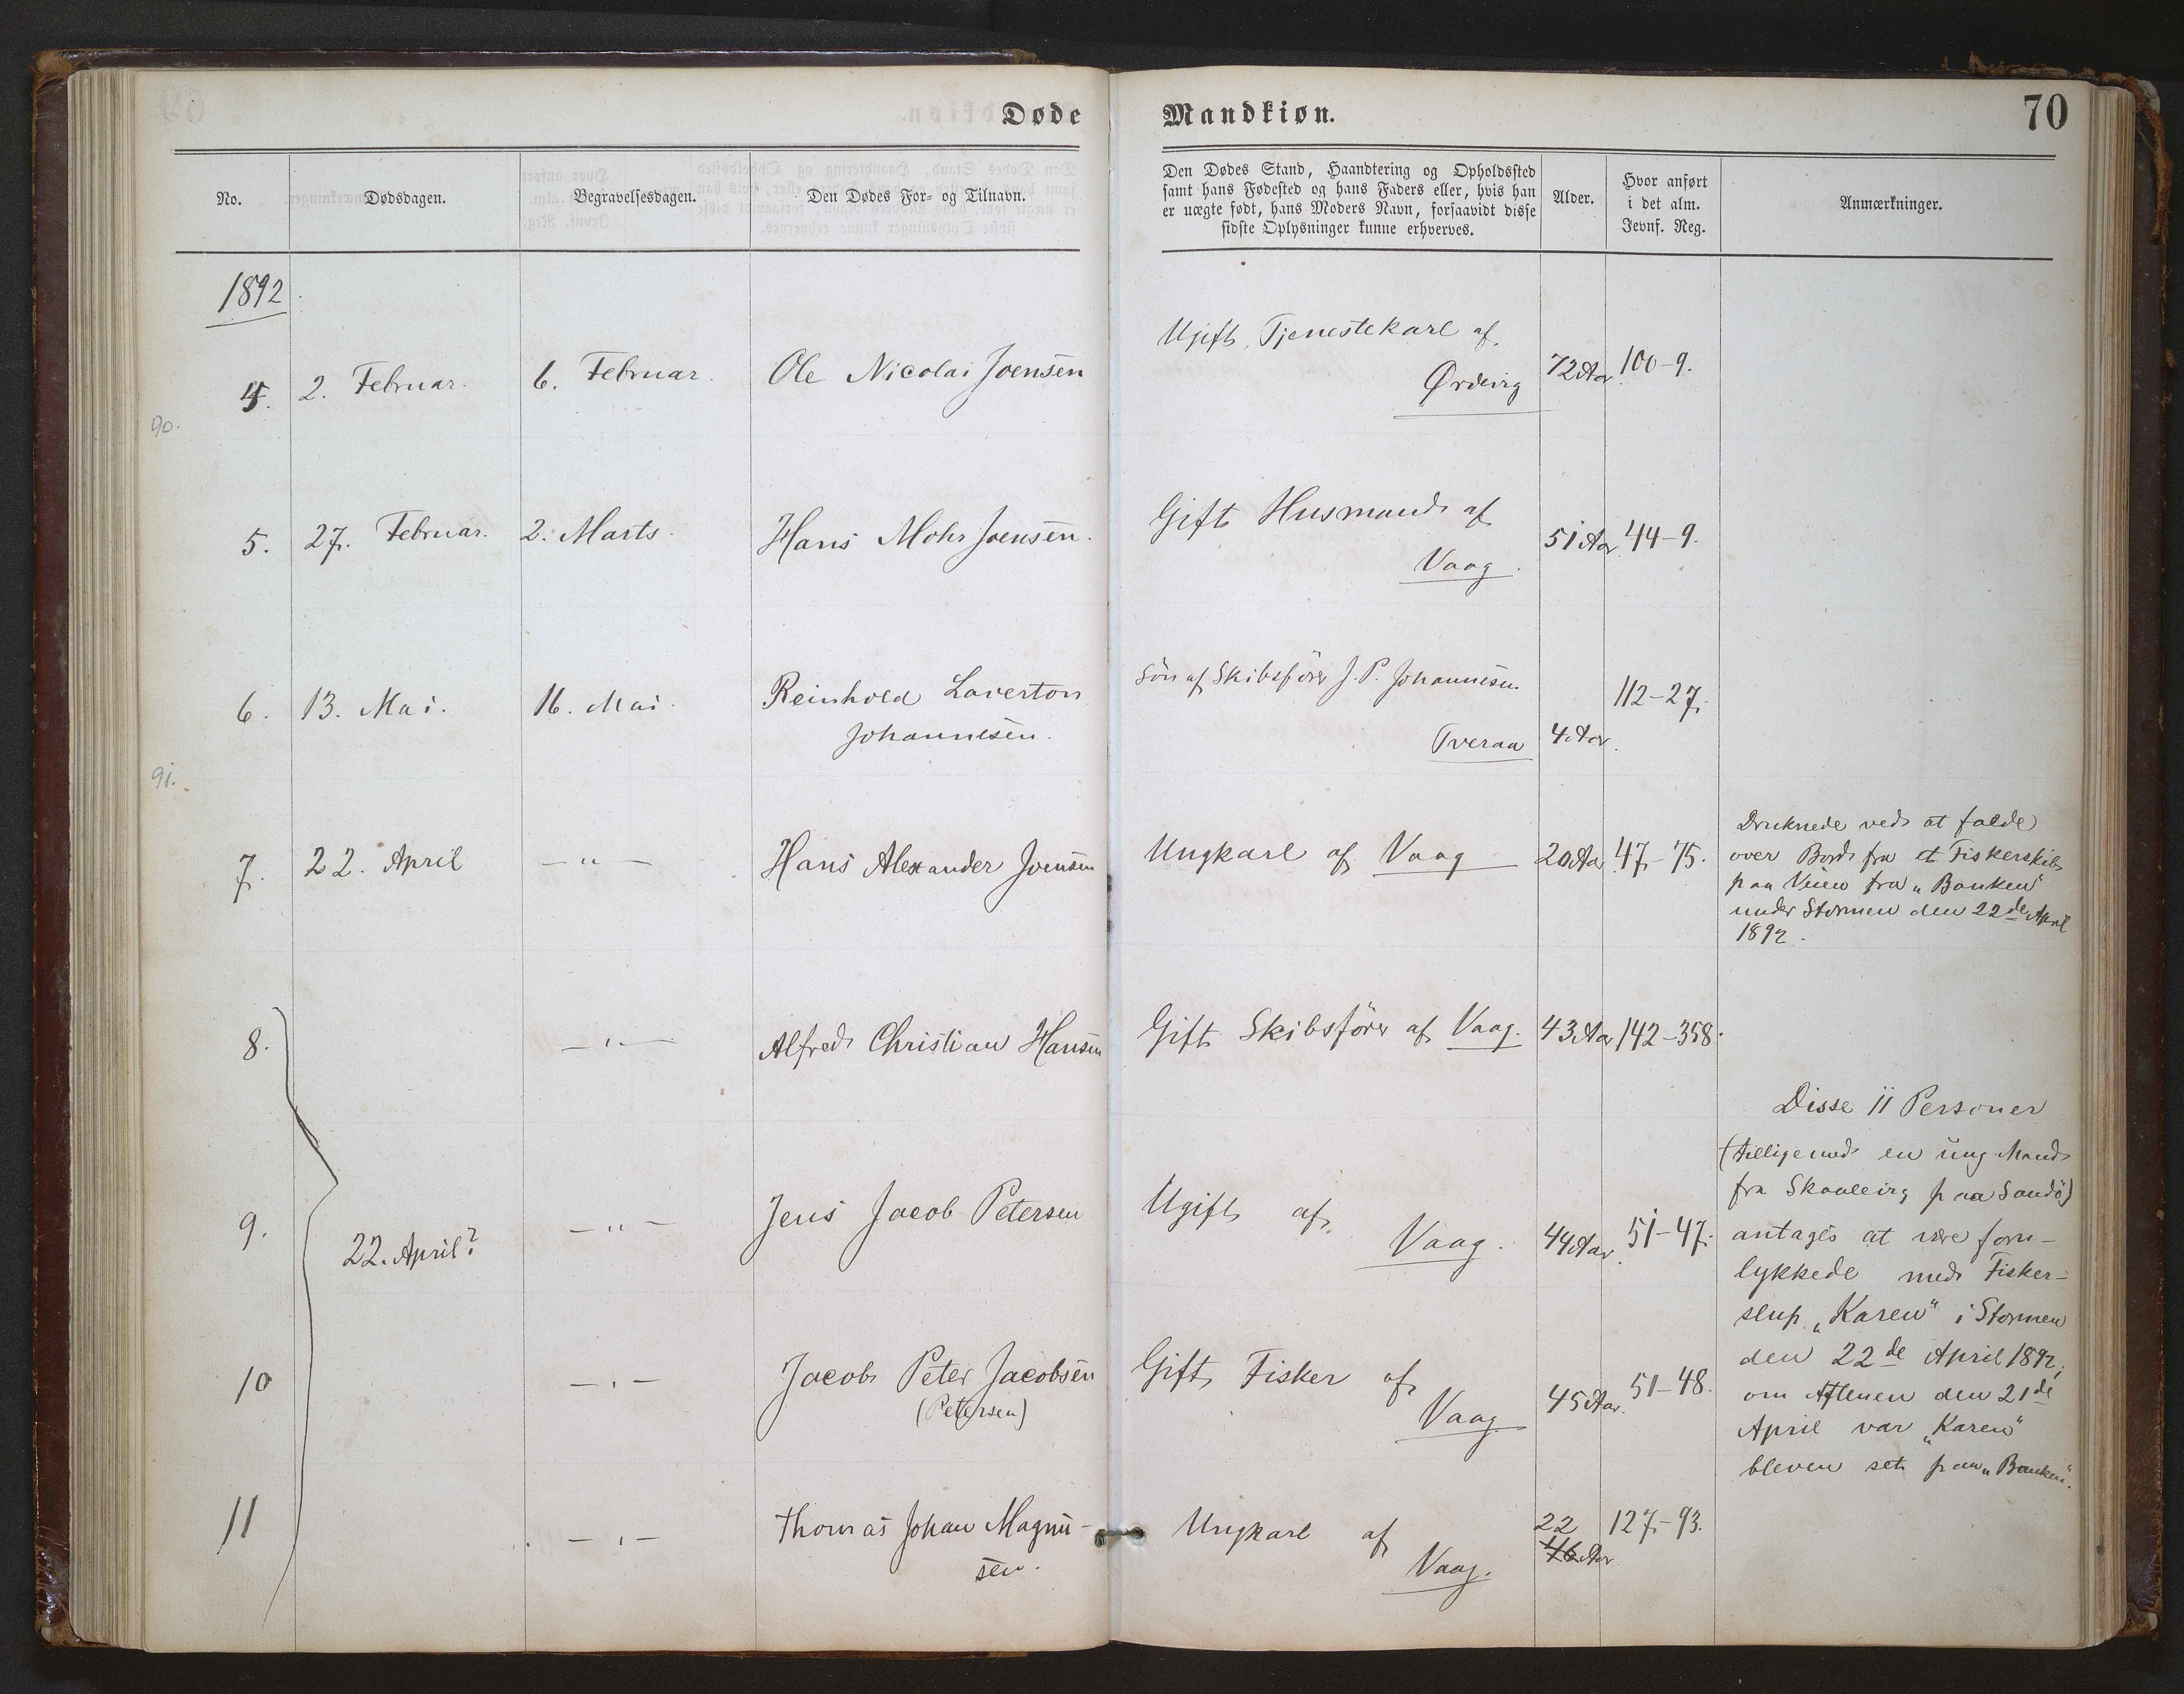 Døde Mandkiøn. 70
No. Dødsdagen. Begravelsesdagen. Den Dødes For- og Tilnavn.
Den Dødes Stand, Haandtering og Opholdssted
samt hans Fødested og hans Faders eller, hvis han
er uægte født, hans Moders Navn, forsaavidt disse
sidste Oplysninger kunne erhverves.
Alder.
Hvor anført
i det alm.
Jevnf. Reg.
Anmærkninger.
1892
90.
4. 2. Februar. 6. Februar. Ole Nicolai Joensen
Ugift Tjenestekarl af
Ørdevig
72 Aar 100-9.
5. 27. Februar. 2. Marts. Hans Mohr Joensen.
Gift Husmand af
Vaag.
51 Aar 44-9.
6. 13. Mai. 16. Mai. Reinhold Laverton
Johannesen.
Søn af Skibsfører J. P. Johannesen
Tveraa
4 Aar. 112-27.
91.
7. 22. April —"— Hans Alexander Joensen
Ungkarl af Vaag
20 Aar 47-75.
Druknede ved at falde
over Bord fra et Fiskerskib
paa Veien fra "Banken"
under Stormen den 22de April
1892.
8. —"— Alfred Christian Hansen
Gift Skibsfører af Vaag. 43 Aar 142-358.
9. —"— Jens Jacob Petersen
Ugift af
Vaag. 44 Aar. 51-47.
22. April?
10 —"— Jacob Peter Jacobsen
(Petersen)
Gift Fisker af
Vaag
45 Aar. 51-48.
11 —"— Thomas Johan Magnu-
sen.
Ungkarl af
Vaag.
22
46 Aar
127-93.
Disse 11 Personer
(tilligemed en ung Mand
fra Skaalevig paa Sandø)
antages at være foru-
lykkede med Fisker-
slup "Karen" i Stormen
den 22de April 1892;
om Aftenen den 21de
April var "Karen"
bleven set paa "Banken".